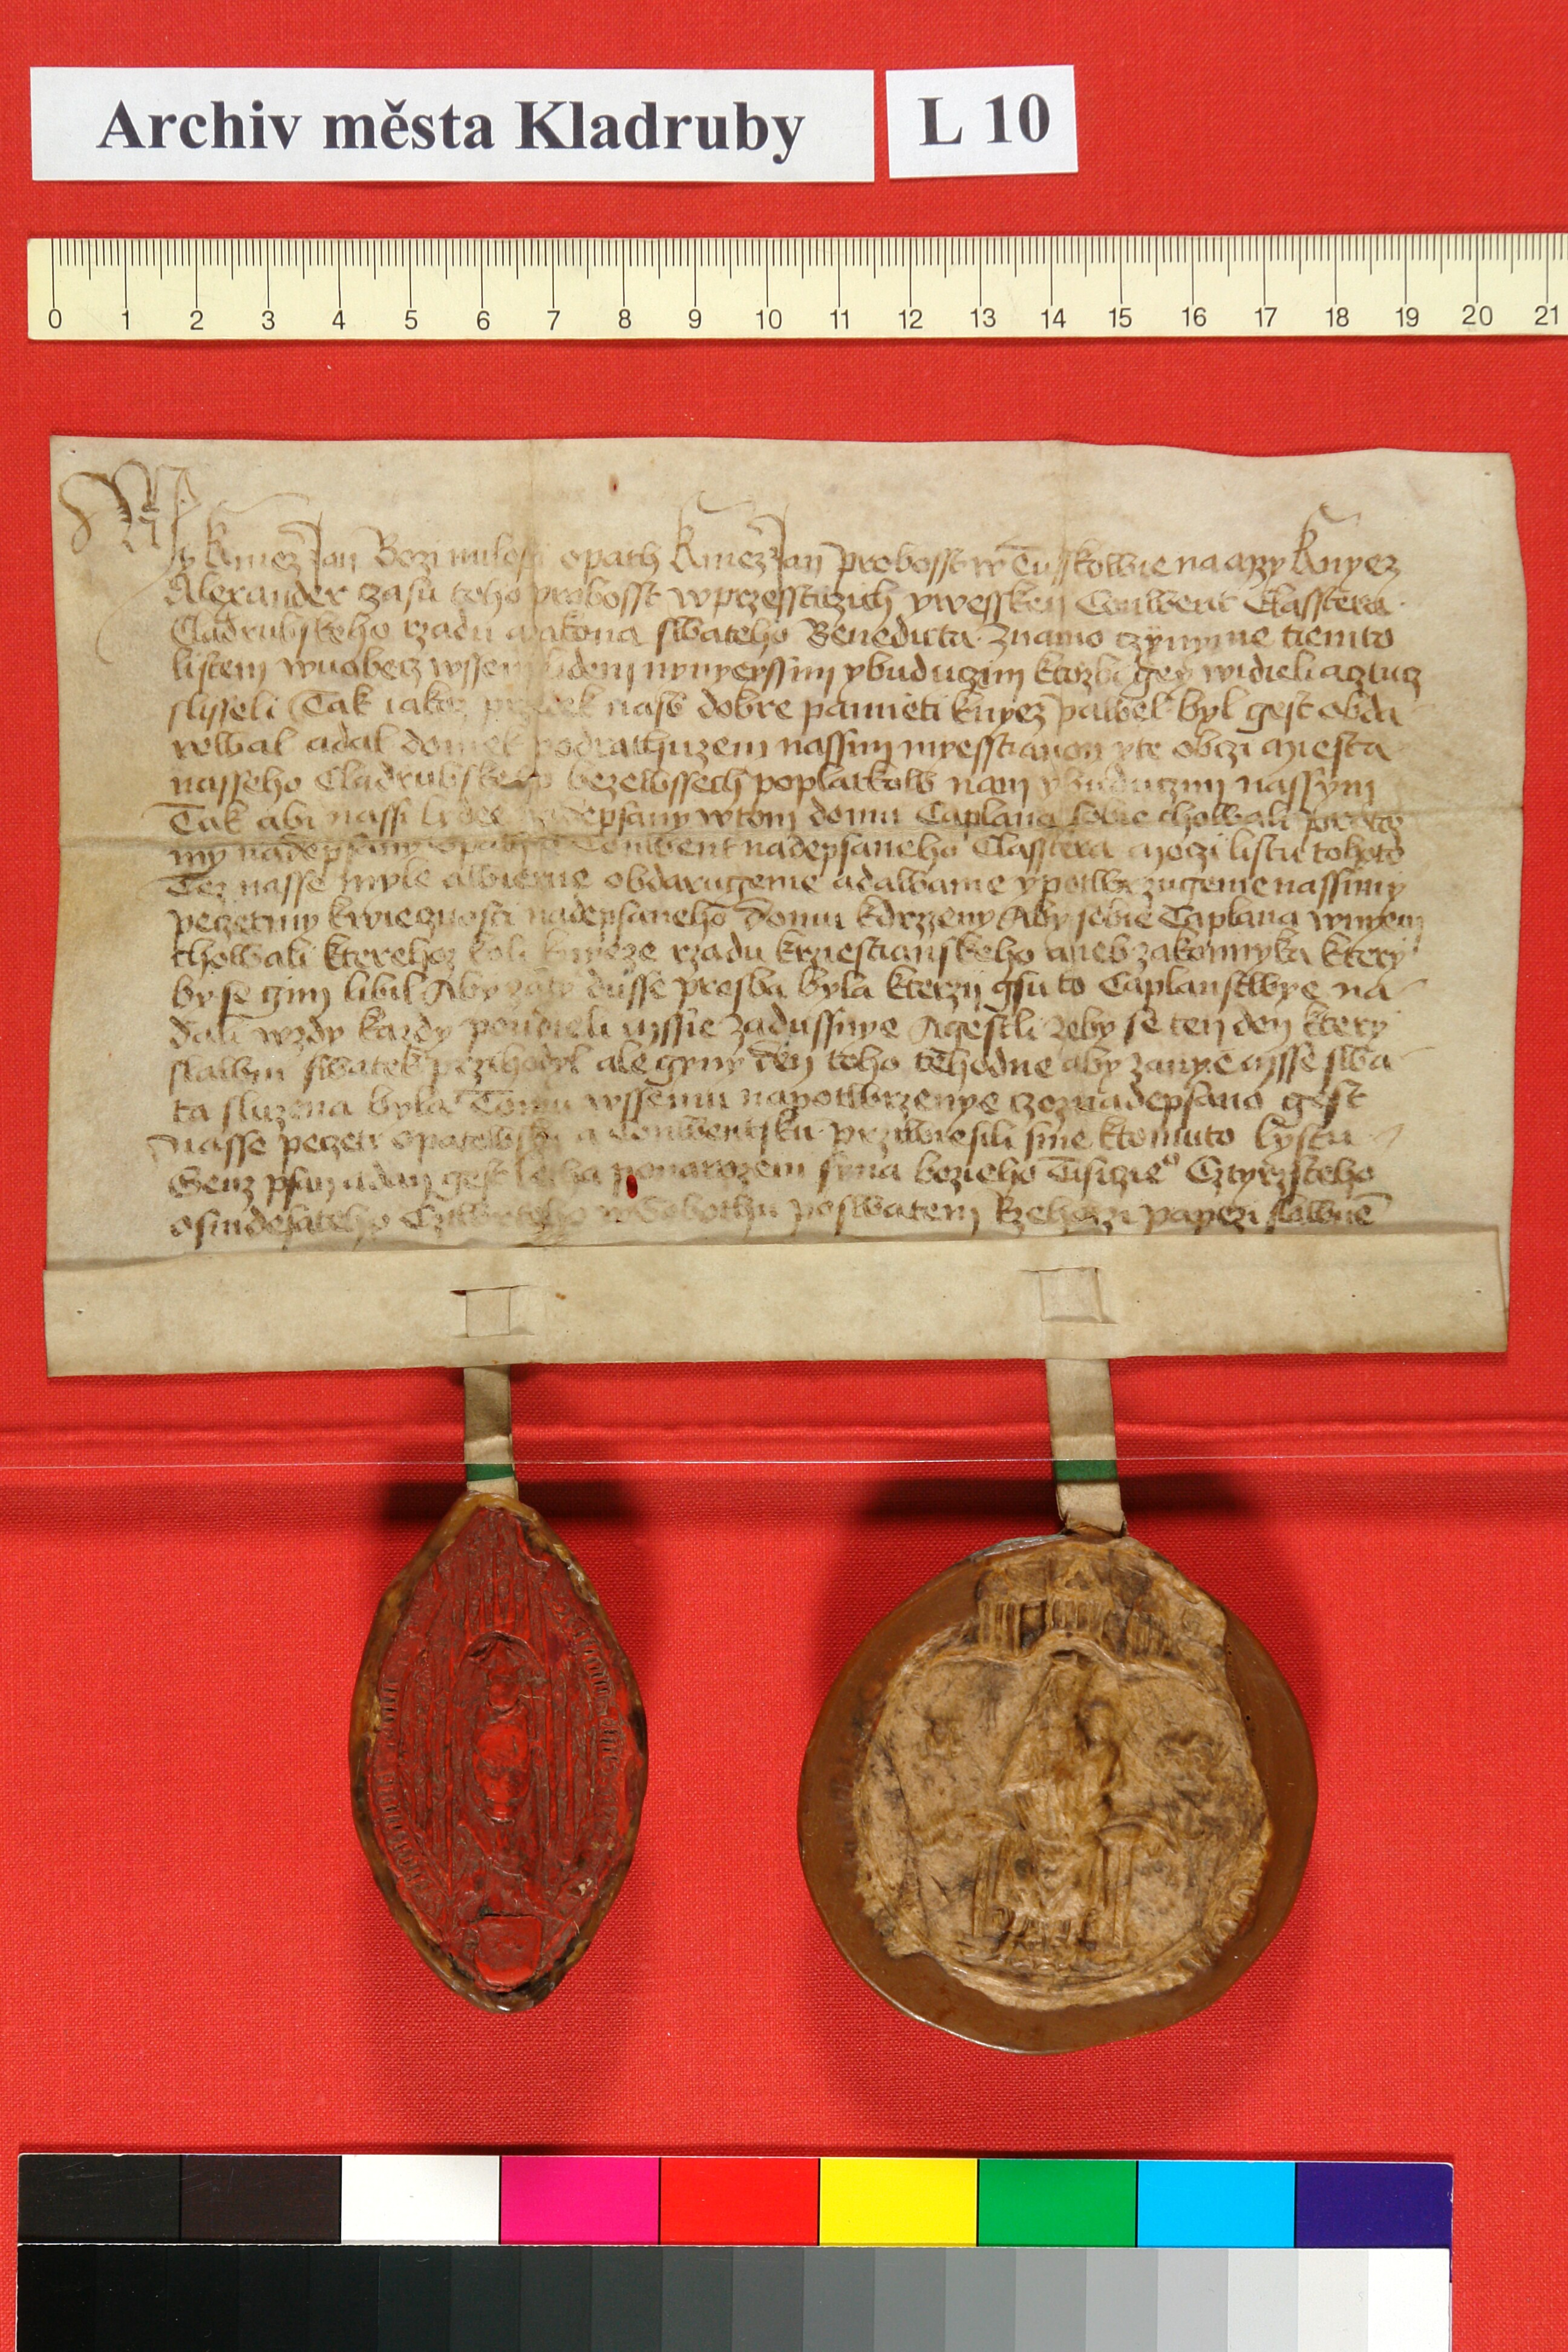 Archiv města Kladruby
L 10
0 1 2 3 4 5 6 7 8 9 10 11 12 13 14 15 16 17 18 19 20 21
My Kniez Jan Bozi milosti opath Kniez Jan probosst w Tusskowie na onzy Knyez
Alexander czasu toho probosst w przessticzich y wessken Conwent Classtera
Cladrubskeho rzadu a zakona swateho Benedicta Znamo czynyme tiemto
listem wuobecz wssem lidem nynyeyssim y buduczim ktozbi gey widieli a cztucz
slisseli Tak iakoz przedek nass dobre pamieti knyez pawel byl gest obda
rowal a dal domek pod rathuzem nassim myesstianom y te obczi miesta
nasseho Cladrubskeho bezewssech poplatkow nam y buduczim nassym
Tak abi nassi lydee nadepsany w tom domu Caplana sobie chowali protto
my nadepsany opath a Conwent nadepsaneho Classtera moczi listu tohoto
Tez nasse myle a wierne obdarugeme a dawame y potwrzugeme nassimy
peczetmy k wiecznosti nadepsaneho domu k drzzeny Aby sobie Caplana w nyem
chowali kterehoz koli knyeze rzadu krziestianskeho aneb zakonnyka ktery
by se gim libil Aby za ty dusse prosba byla kterzij gsu to Caplanstwye na
dali wzdy kazdy pondieli mssie zadussnye A gestli zeby se ten den ktery
slawni swatek przihodyl ale gyny den toho tehodne aby za nye msse swa
ta sluzena byla Tomu wssemu na potwrzenye czoz nadepsano gest
Nasse peczeti opatowsku a conwentsku przywiesili sme k tomuto lystu
Genz psan a dan gest letha po narozeni syna bozieho Tisiczieo Cztyrzsteho
osmdesateho Cztwrteho w Sobothu po swatem Rzehorzi papezi slawnem